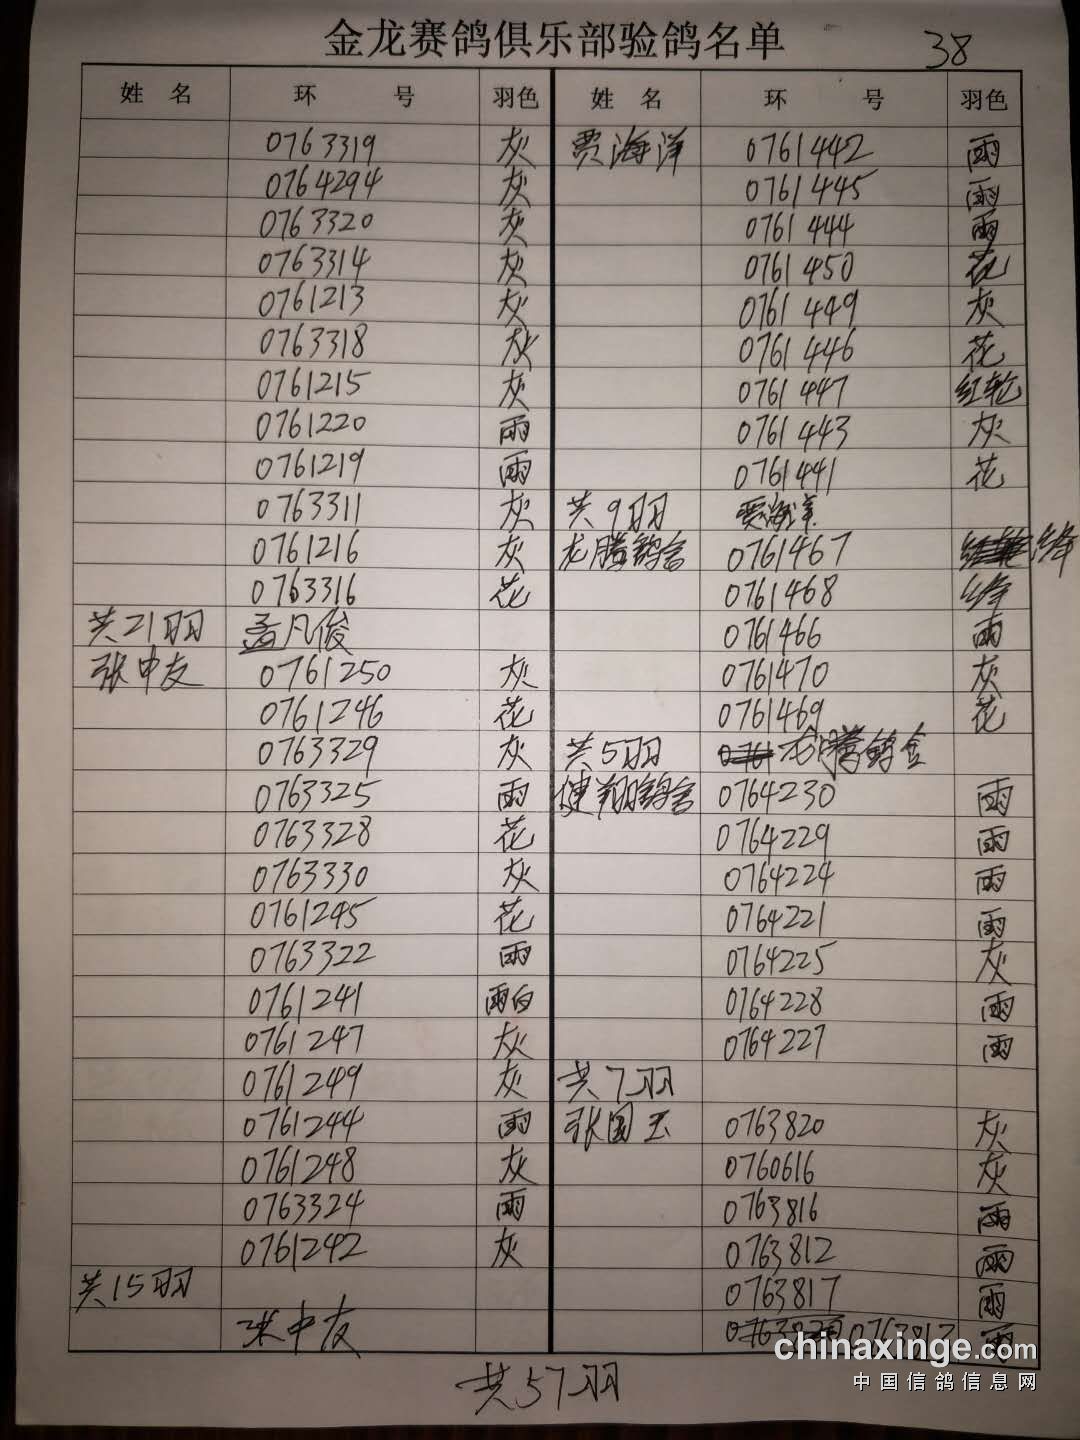 金龙赛鸽俱乐部验鸽名单 38
姓 名 环 号 羽色 姓 名 环 号 羽色
0763319 灰 贾海洋 0761442 雨
0764294 灰 0761445 雨
0763320 灰 0761444 雨
0763314 灰 0761450 花
0761213 灰 0761449 灰
0763318 灰 0761446 花
0761215 灰 0761447 红轮
0761220 雨 0761443 灰
0761219 雨 0761441 花
0763311 灰 共9羽 贾海洋
0761216 灰 龙腾鸽舍 0761467 绛
0763316 花 0761468 绛
共21羽 孟凡俊 0761466 雨
张中友 0761250 灰 0761470 灰
0761246 花 0761469 花
0763329 灰 共5羽 0761 龙腾鸽舍
0763325 雨 健翔鸽舍 0764230 雨
0763328 花 0764229 雨
0763330 灰 0764224 雨
0761245 花 0764221 雨
0763322 雨 0764225 灰
0761241 雨白 0764228 雨
0761247 灰 0764227 雨
0761249 灰 共7羽
0761244 雨 张国玉 0763820 灰
0761248 灰 0760616 灰
0763324 雨 0763816 雨
0761242 灰 0763812 雨
共15羽 0763817 雨
张中友 0763813 雨
共57羽
chinaxinge.com
中国信鸽信息网